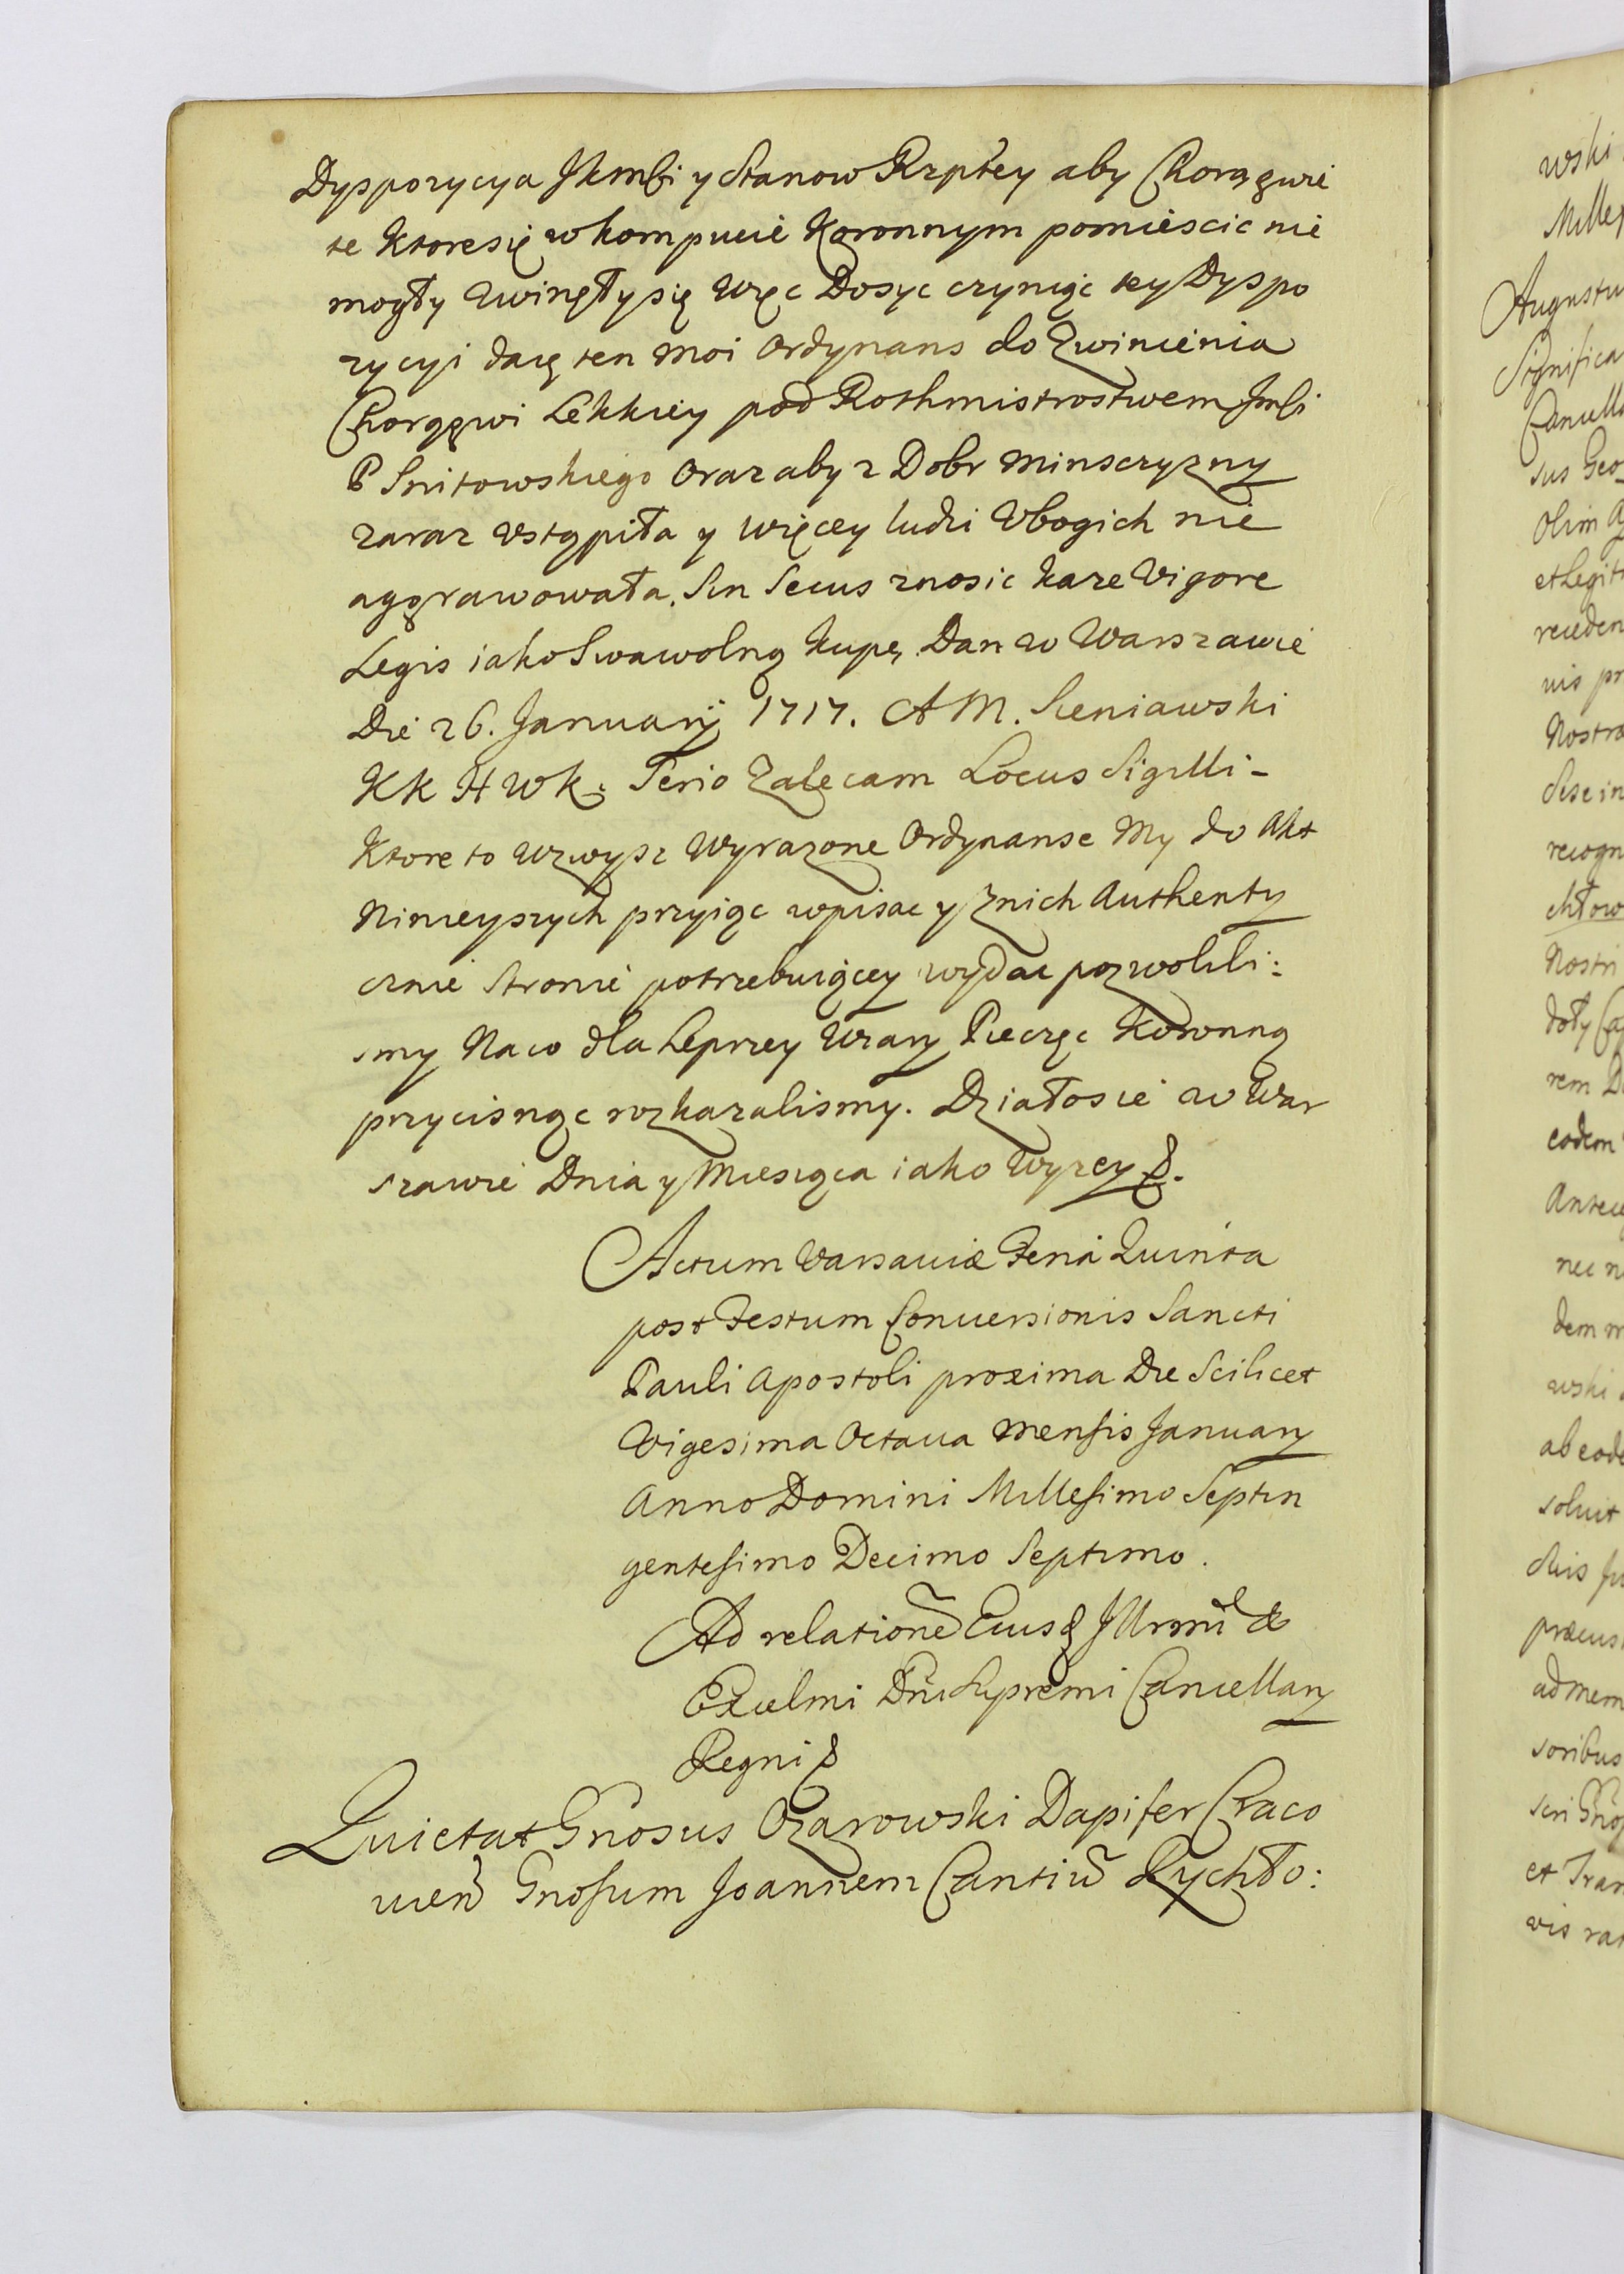 Dyspozycya JKmści y Stanow Rzptey aby Chorągwie
te ktore się w kompucie Koronnym pomiescic nie
mogły zwinęły się Więc Dosyc czyniąc tey Dyspo
zycyi daię ten moi Ordynans do Zwinienia
Chorągwi Lekkiey pod Rothmistrostwem Jmści
P Snitowskiego Oraz aby z Dobr Minsczyzny
zaraz Ustąpiła y więcey ludzi Ubogich nie
aggrawowała. Sin Secus znosic kaze Vigore
Legis iako Swawolną kupę, Dan w Warszawie
Die 26. Januarij 1717. A M. Sieniawski
K K H W K. Serio Zalecam Locus Sigilli -
Ktore to wzwysz Wyrazone Ordynanse My do Akt
Ninieyszych przyiąc wpisac y Znich Authenty
cznie Stronie potrzebuiącey wydac pozwolili:
smy Na co dla Lepszey Wiary Pieczęc Koronną
przycisnąc rozkazalismy. Działo sie w War
szawie Dnia y Miesiąca iako Wyzey.
Actum Varsaviæ Feria Quinta
post Festum Conversionis Sancti
Pauli Apostoli proxima Die Scilicet
Vigesima Octava Mensis January
Anno Domini Millesimo Septin
gentesimo Decimo Septimo.
Ad relationē Eiusd Illrmi &
Excelmi Dni Supremi Cancellary
Regni
Quietat Gnosus Ozarowski Dapifer Craco
vien Gnosum Joannem Cantiū Rychło:
wski
Augustu
Significa
Cancella
sus Geo
Olim
et Legit
receden
vis pr
Nostra
Sese in
recogn
chłow
Nostri
doły Ca
rem D
eodem
Antece
nec n
dem m
wski
ab eode
solvit
præcus
ad mem
soribus
seri Gno
et Tran
vis rat